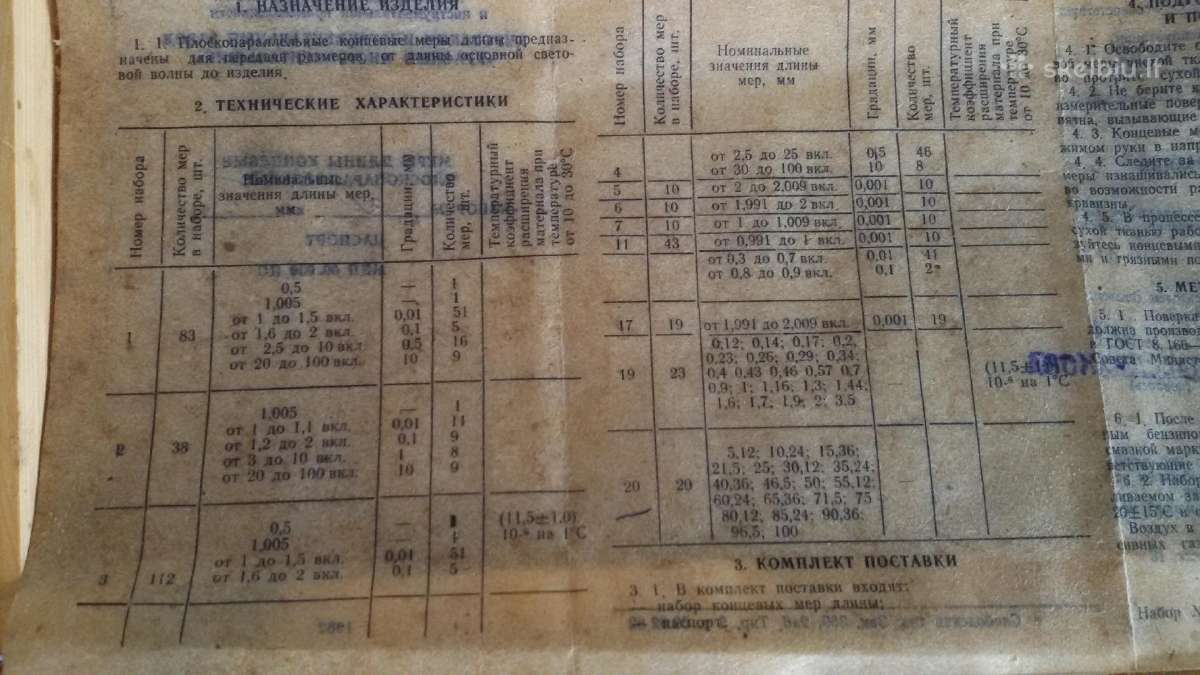 1. НАЗНАЧЕНИЕ ИЗДЕЛИЯ
1. 1. Плоскопараллельные концевые меры длины предназ-
начены для передачи размеров, от длины основной свето-
вой волны до изделия.
2. ТЕХНИЧЕСКИЕ ХАРАКТЕРИСТИКИ
Номер набора
Количество мер в наборе, шт.
Номинальные
значения длины мер,
мм
Градации, мм
Количество мер, шт.
Температурный коэффициент расширения материала при температуре от 10 до 30°С
1 83
0,5 — 1
1,005 — 1
от 1 до 1,5 вкл. 0,01 51
от 1,6 до 2 вкл. 0,1 5
от 2,5 до 10 вкл. 0,5 16
от 20 до 100 вкл. 10 9
2 38
1,005 — 1
от 1 до 1,1 вкл. 0,01 11
от 1,2 до 2 вкл. 0,1 9
от 3 до 10 вкл. 1 8
от 20 до 100 вкл. 10 9
3 112
0,5 — 1
1,005 — 1
от 1 до 1,5 вкл. 0,01 51
от 1,6 до 2 вкл. 0,1 5
(11,5±1,0)
10-⁶ на 1°С
Номер набора
Количество мер в наборе, шт.
Номинальные
значения длины
мер, мм
Градации, мм
Количество мер, шт.
Температурный коэффициент расширения материала при температуре от 10 до 30°С
от 2,5 до 25 вкл. 0,5 46
4 от 30 до 100 вкл. 10 8
5 10 от 2 до 2,009 вкл. 0,001 10
6 10 от 1,991 до 2 вкл 0,001 10
7 10 от 1 до 1,009 вкл. 0,001 10
11 43 от 0,991 до 1 вкл. 0,001 10
от 0,3 до 0,7 вкл. 0,01 41
от 0,8 до 0,9 вкл. 0,1 2
17 19 от 1,991 до 2,009 вкл. 0,001 19
19 23
0,12; 0,14; 0,17; 0,2,
0,23; 0,26; 0,29; 0,34;
0,4 0,43 0,46 0,57 0,7
0,9; 1; 1,16; 1,3; 1,44;
1,6; 1,7, 1,9; 2; 3,5
—
(11,5±
10-⁶ на 1°С
20 20
5,12; 10,24; 15,36;
21,5; 25; 30,12; 35,24;
40,36; 46,5; 50; 55,12;
60,24; 65,36; 71,5; 75
80,12; 85,24; 90,36;
96,5; 100
—
3. КОМПЛЕКТ ПОСТАВКИ
3. 1. В комплект поставки входят:
набор концевых мер длины;
паспорт
4. ПОДГОТ
И П
4. 1. Освободите
сухой
4. 2. Не берите к
измерительные повер
пятна, вызывающие
4. 3. Концевые м
жимом руки в напр
4. 4. Следите за
меры изнашивались
во возможности ра
кривизны.
4. 5. В процессе
сухой тканью рабо
зуйтесь концевыми
ми и грязными по
5. МЕТ
5. 1. Поверка
должна произво
с ГОСТ 8.166—
Совета Минист
6. 1. После
вым бензино
смазкой марк
ветствующие
6. 2. Набор
ливаемом за
20±15°С и о
Воздух и
сивных газ
Набор №
skelbiu.lt